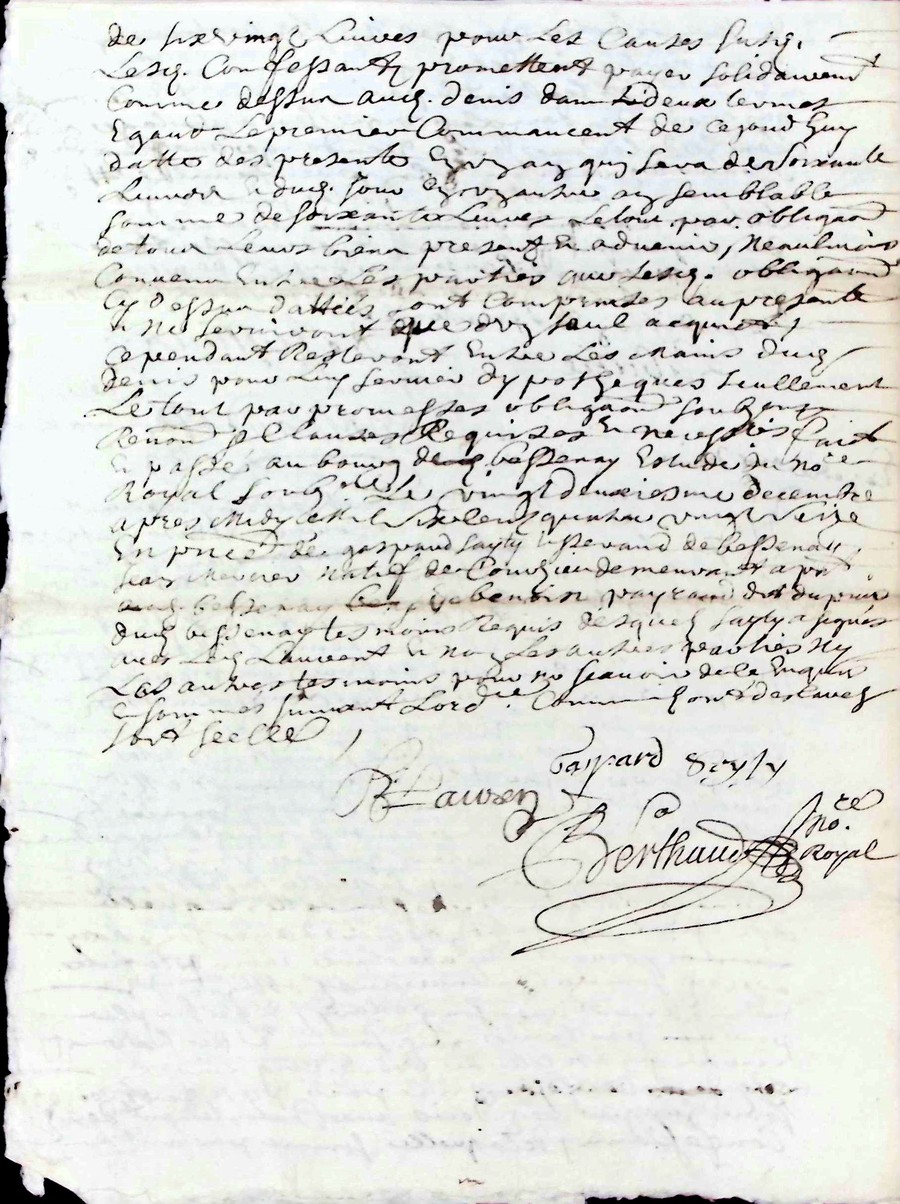 de six vingt Livres pour Les Causes susd.
Lesd. Confessantz promettent payer solidairement
Comme dessus aud. denis dam En deux termes
Egaux Le premier Commancent de ce jourd'huy
datte des presente En un an qui sera de Soixante
Livres Et dud. Jour En un autre an semblable
somme de soixante Livres Le tout par obliga͠on
de tous Leurs biens presentz Et advenir, Neaulmoins
Convenu Entre Les parties que Lesd. obliga͠ons
Cy dessus dattées sont Comprises au presente
Et ne serviront que d'un seul acquit,
cependant Resteront Entre Les Mains dud.
denis pour Luy servir d'ypotheques seullement
Le tout par promesses obliga͠on soubz
Renon͠ Clauses Requises Et necess͠es Faict
Et passé au bourg de bessenay Estude du No.re
Royal soubz.né Le vingt deuxiesme decembre
apres Midy Mil six Cent quatre vingt Seize
En pnce de gaspard sayly de bessenay,
Jean Mercier Natif de Courzieu demeurant a pnt
aud. bessenay benoist payraud du
dud. bessenay tesmoins Requis desquelz sayly a signé
avec Led. Laurent Et non Les autres parties Ny
Les autres tesmoins pour ne scavoir de ce Enquis
Et sommes suivant Lord.ce
sera scellé,
Gaspard Sayly
Laurent
Berthaud No.re
Royal